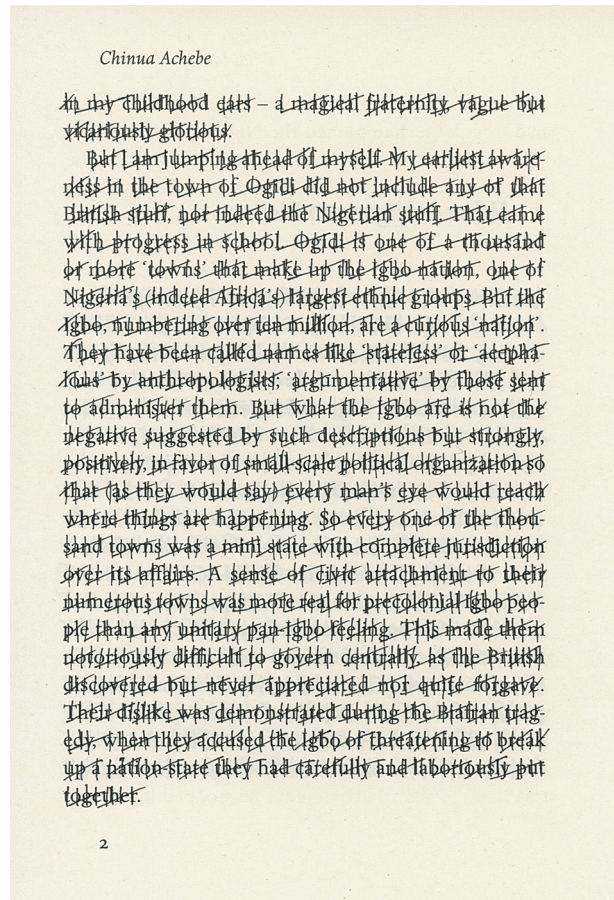 Chinua Achebe
in my childhood ears – a magical fraternity, vague but
vicariously glorious.
But I am jumping ahead of myself. My earliest aware-
ness in the town of Ogidi did not include any of that
British stuff, nor indeed the Nigerian stuff. That came
with progress in school. Ogidi is one of a thousand
or more ‘towns’ that make up the Igbo nation, one of
Nigeria’s (indeed Africa’s) largest ethnic groups. But the
Igbo, numbering over ten million, are a curious ‘nation’.
They have been called names like ‘stateless’ or ‘acepha-
lous’ by anthropologists; ‘argumentative’ by those sent
to administer them. But what the Igbo are is not the
negative suggested by such descriptions but strongly,
positively, in favor of small-scale political organization so
that (as they would say) every man’s eye would reach
where things are happening. So every one of the thou-
sand towns was a mini state with complete jurisdiction
over its affairs. A sense of civic attachment to their
numerous towns was more real for precolonial Igbo peo-
ple than any unitary pan-Igbo feeling. This made them
notoriously difficult to govern centrally, as the British
discovered but never appreciated nor quite forgave.
Their dislike was demonstrated during the Biafran trag-
edy, when they accused the Igbo of threatening to break
up a nation-state they had carefully and laboriously put
together.
2